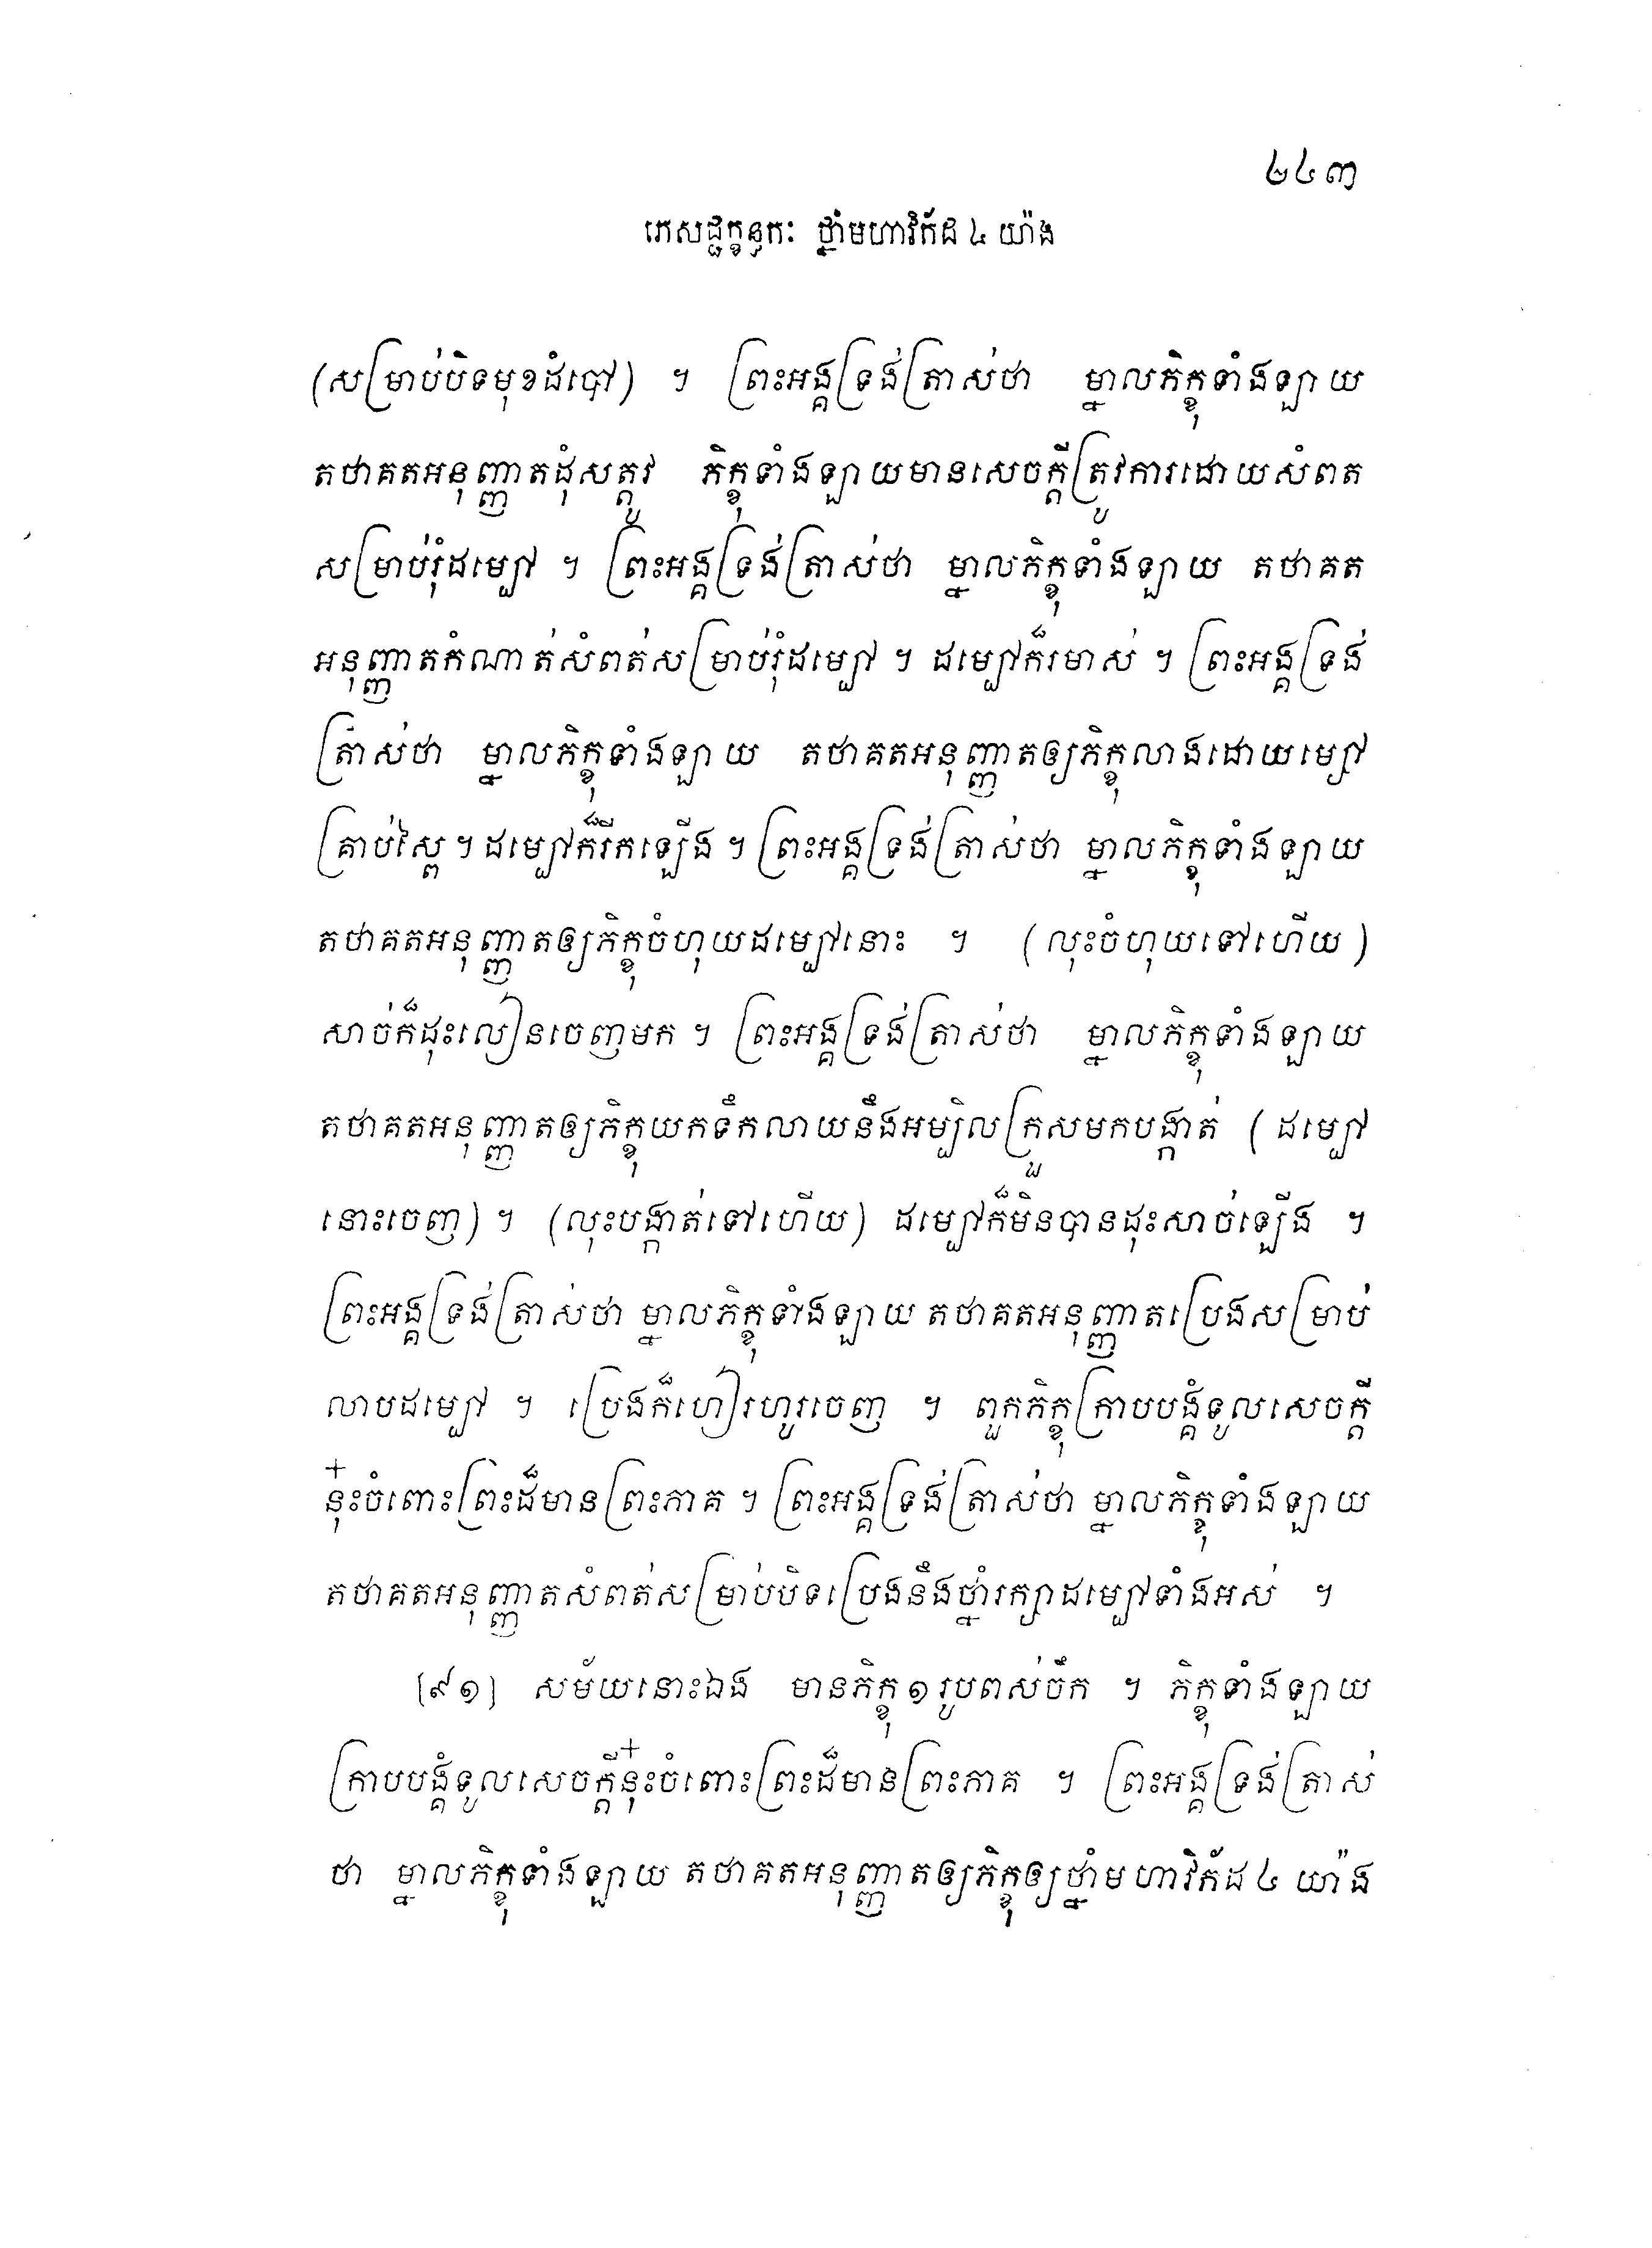 ២៤៣
ភេសជ្ជក្ខន្ធកៈ ថ្នាំមហាវិក័ដ ៤ យ៉ាង
(សម្រាប់បិទមុខដំបៅ) ។ ព្រះអង្គទ្រង់ត្រាស់ថា ម្នាលភិក្ខុទាំងឡាយ
តថាគតអនុញ្ញាតដុំសត្តូវ ភិក្ខុទាំងឡាយមានសេចក្តីត្រូវការដោយសំពត
សម្រាប់រុំដម្បៅ ។ ព្រះអង្គទ្រង់ត្រាស់ថា ម្នាលភិក្ខុទាំងឡាយ តថាគត
អនុញ្ញាតកំណាត់សំពត់សម្រាប់រុំដម្បៅ ។ ដម្បៅក៏រមាស់ ។ ព្រះអង្គទ្រង់
ត្រាស់ថា ម្នាលភិក្ខុទាំងឡាយ តថាគតអនុញ្ញាតឲ្យភិក្ខុលាងដោយម្សៅ
គ្រាប់ស្ពៃ ។ ដម្បៅក៏រីកឡើង ។ ព្រះអង្គទ្រង់ត្រាស់ថា ម្នាលភិក្ខុទាំងឡាយ
តថាគតអនុញ្ញាតឲ្យភិក្ខុចំហុយដម្បៅនោះ ។ (លុះចំហុយទៅហើយ)
សាច់ក៏ដុះលៀនចេញមក ។ ព្រះអង្គទ្រង់ត្រាស់ថា ម្នាលភិក្ខុទាំងឡាយ
តថាគតអនុញ្ញាតឲ្យភិក្ខុយកទឹកលាយនឹងអម្បិលគ្រួសមកបង្កាត់ (ដម្បៅ
នោះចេញ) ។ (លុះបង្កាត់ទៅហើយ) ដម្បៅក៏មិនបានដុះសាច់ឡើង ។
ព្រះអង្គទ្រង់ត្រាស់ថា ម្នាលភិក្ខុទាំងឡាយ តថាគតអនុញ្ញាតប្រេងសម្រាប់
លាបដម្បៅ ។ ប្រេងក៏ហៀរហូរចេញ ។ ពួកភិក្ខុក្រាបបង្គំទូលសេចក្តី
នុ៎ះចំពោះព្រះដ៏មានព្រះភាគ ។ ព្រះអង្គទ្រង់ត្រាស់ថា ម្នាលភិក្ខុទាំងឡាយ
តថាគតអនុញ្ញាតសំពត់សម្រាប់បិទប្រេងនឹងថ្នាំរក្សាដម្បៅទាំងអស់ ។
[៩១] សម័យនោះឯង មានភិក្ខុ១រូបពស់ចឹក ។ ភិក្ខុទាំងឡាយ
ក្រាបបង្គំទូលសេចក្តីនុ៎ះចំពោះព្រះដ៏មានព្រះភាគ ។ ព្រះអង្គទ្រង់ត្រាស់
ថា ម្នាលភិក្ខុទាំងឡាយ តថាគតអនុញ្ញាតឲ្យភិក្ខុឲ្យថ្នាំមហាវិក័ដ ៤ យ៉ាង